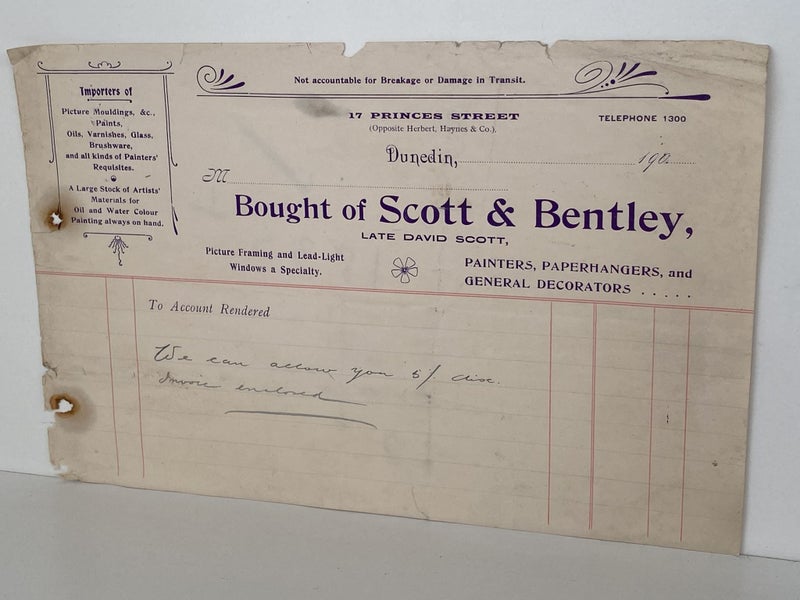 Importers of
Picture Mouldings, &c.,
Paints,
Oils, Varnishes, Glass,
Brushware,
and all kinds of Painters'
Requisites.
A Large Stock of Artists'
Materials for
Oil and Water Colour
Painting always on hand.
Not accountable for Breakage or Damage in Transit.
17 PRINCES STREET
(Opposite Herbert, Haynes & Co.).
TELEPHONE 1300
Dunedin, 190
M
Bought of Scott & Bentley,
LATE DAVID SCOTT,
Picture Framing and Lead-Light
Windows a Specialty.
PAINTERS, PAPERHANGERS, and
GENERAL DECORATORS . . . . .
To Account Rendered
We can allow you 5% disc.
Invoice enclosed